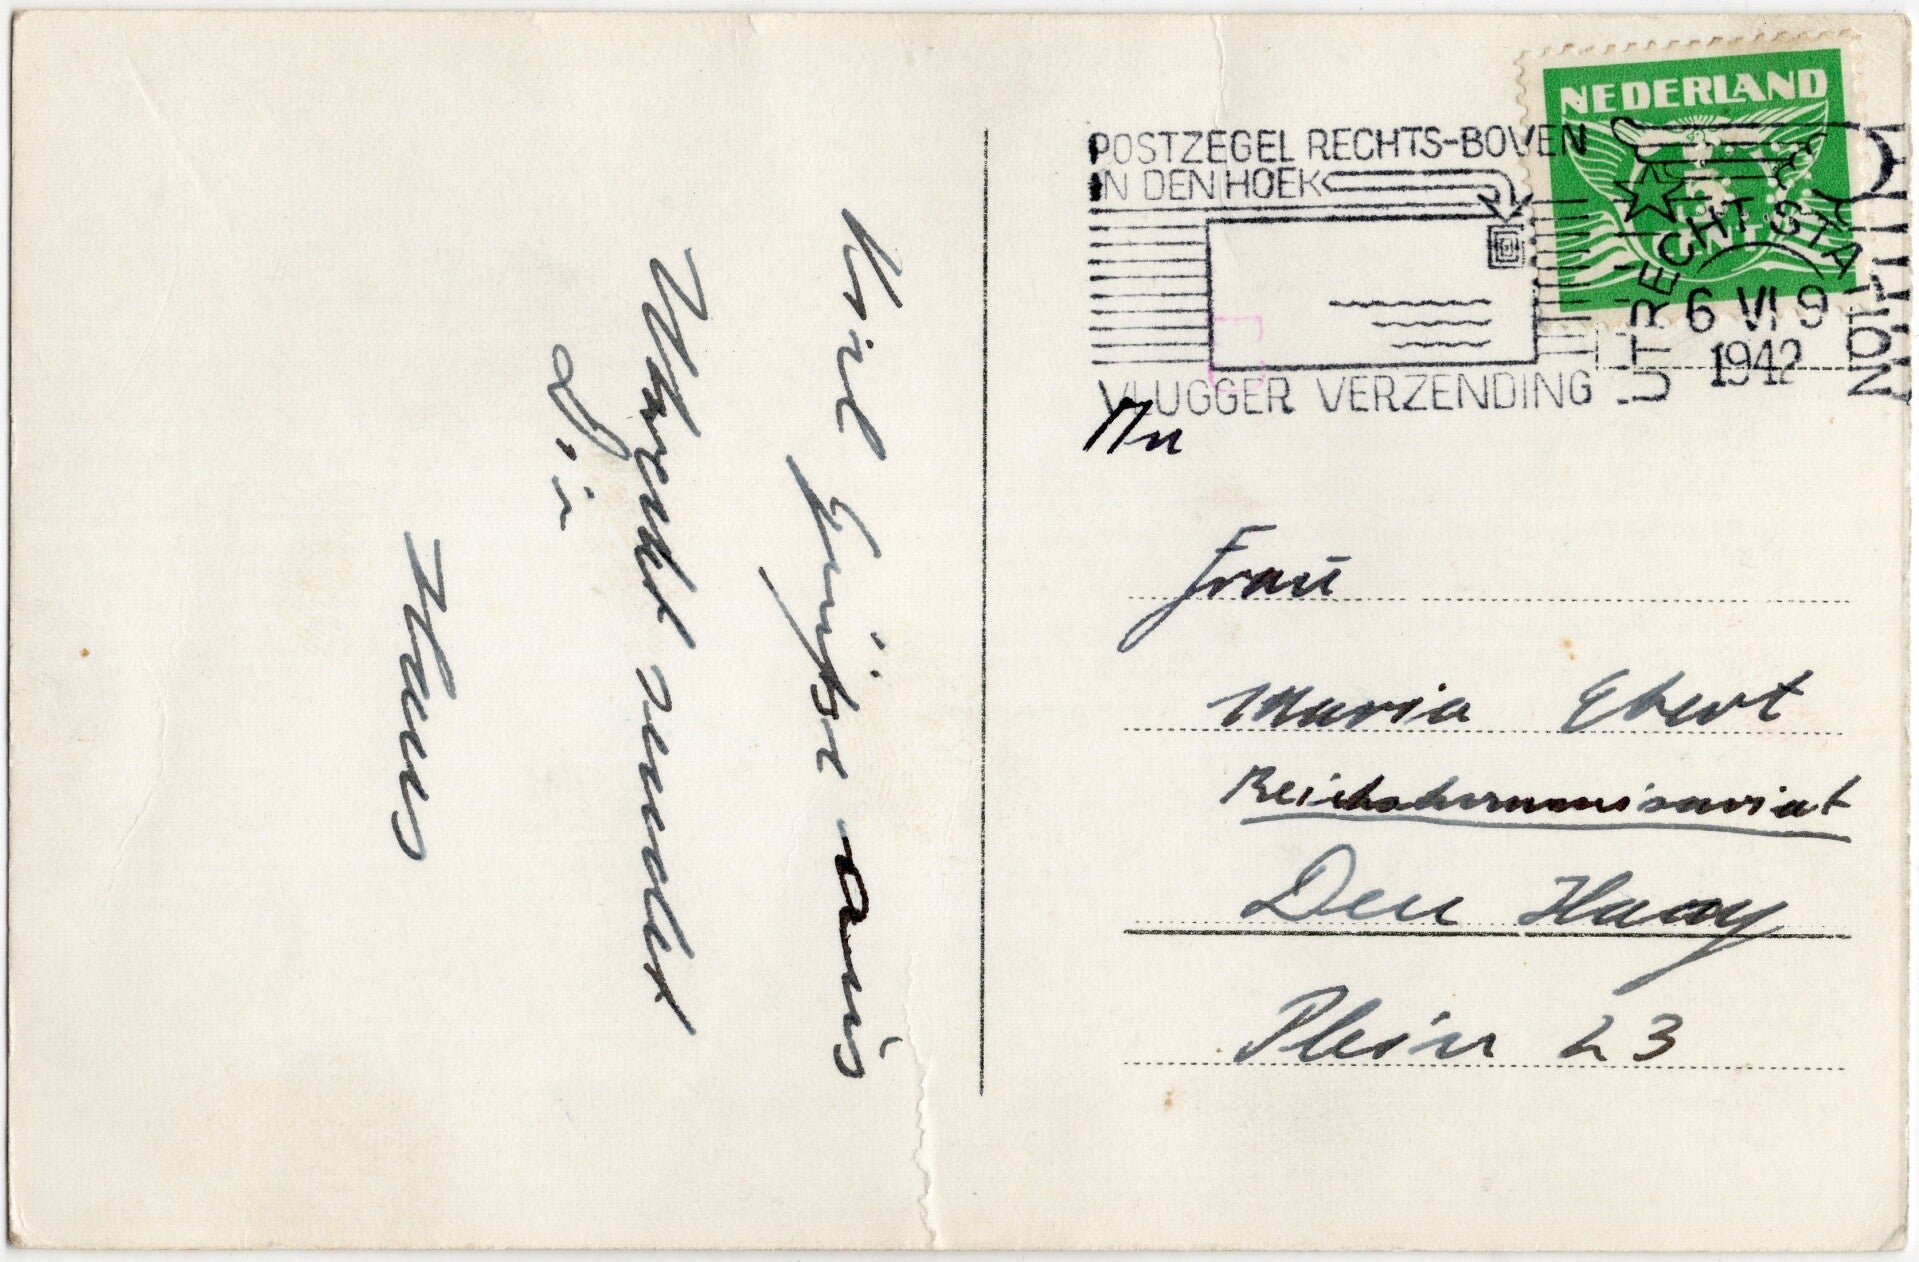 Viel Grüße aus
Utrecht sendet
Dir
Hans
POSTZEGEL RECHTS-BOVEN
IN DEN HOEK
VLUGGER VERZENDING
NEDERLAND
CENT
UTRECHT STA
6 VI 9
1942
An
Frau
Maria Ebert
Reichskommissariat
Den Haag
Plein 23